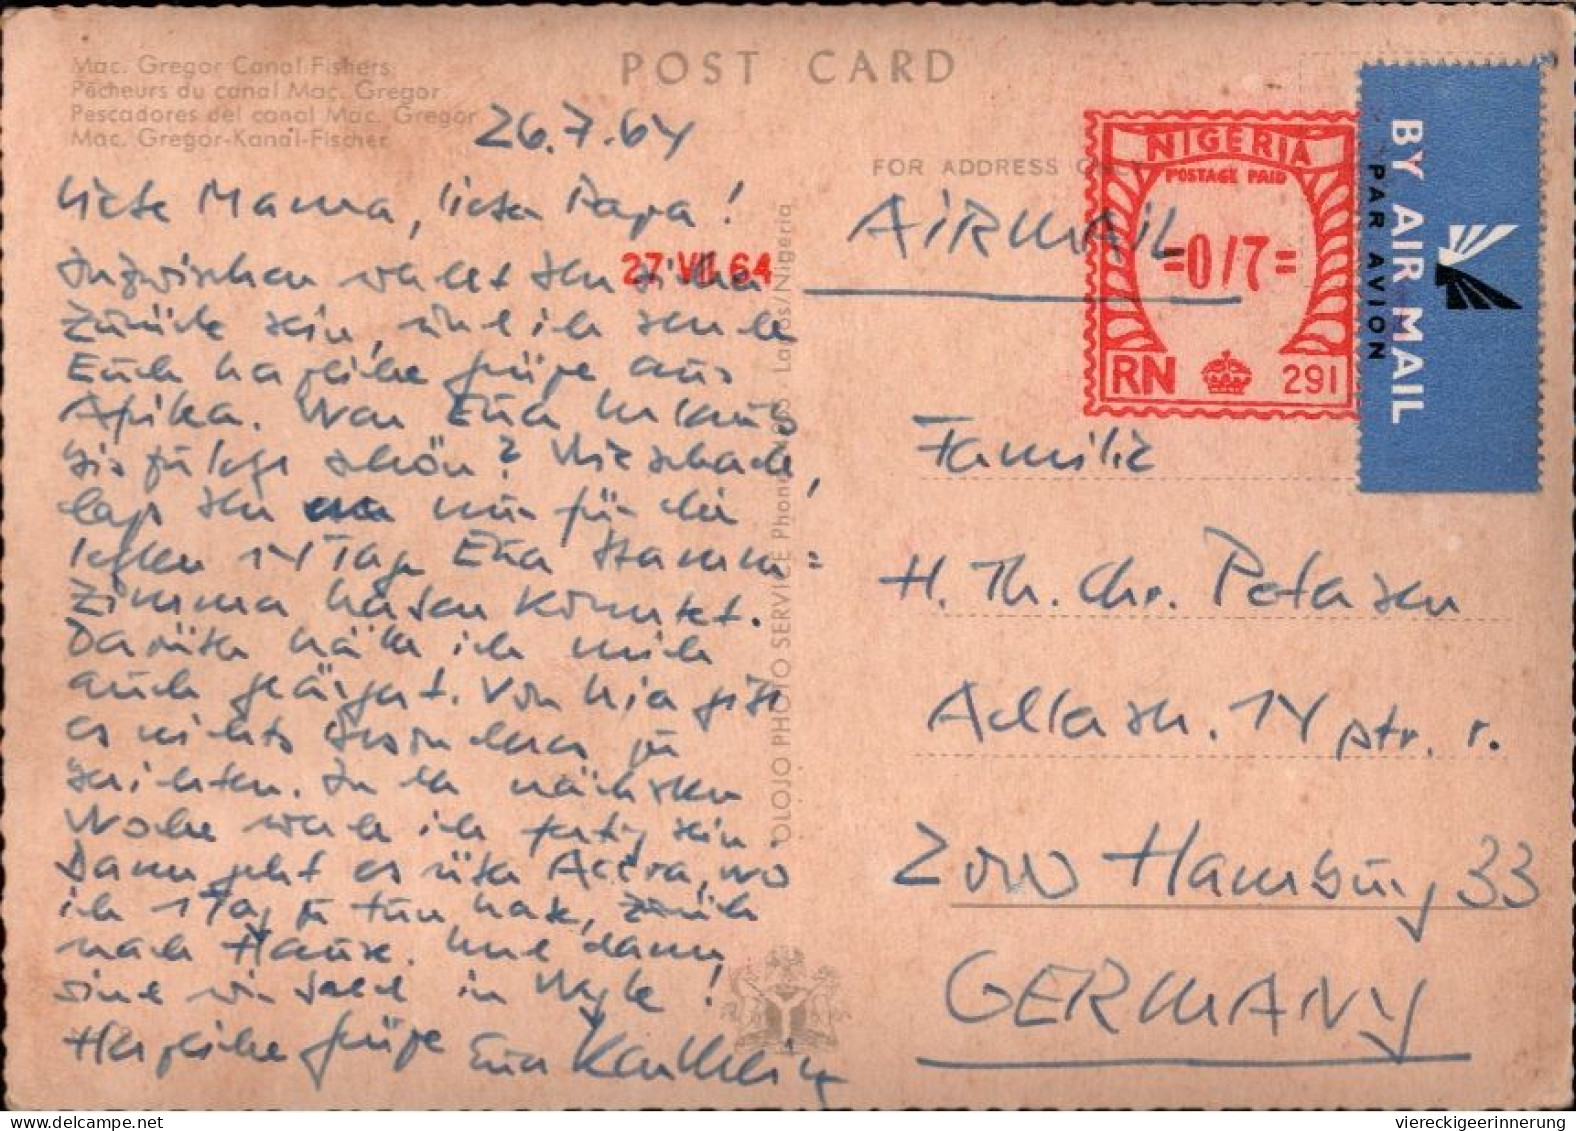 Mac. Gregor Canal Fishers
Pêcheurs du canal Mac. Gregor
Pescadores del canal Mac. Gregor
Mac. Gregor-Kanal-Fischer
POST CARD
FOR ADDRESS ONLY
26.7.64
Liebe Mama, lieber Papa!
Inzwischen werdet Ihr sicher
zurück sein, und ich sende
Euch herzliche Grüße aus
Afrika. War Euer Urlaub
bis zuletzt schön? Wie schade,
daß Ihr nur für die
letzten 14 Tage Euer Stamm=
zimmer haben konntet.
Darüber hätte ich mich
auch geärgert. Von hier gibt
es nichts besonderes zu
berichten. In der nächsten
Woche werde ich fertig sein.
Dann geht es über Accra, wo
ich 1 Tag zu tun habe, zurück
nach Hause. Und dann
sind wir bald in Wyk!
Herzliche Grüße Euer Karl Heinz
27 VII 64
OLOJO PHOTO SERVICE Phone Lagos/Nigeria
AIRMAIL
NIGERIA
POSTAGE PAID
=0/7=
RN 291
BY AIR MAIL
PAR AVION
Familie
H. Th. Chr. Petersen
Adlerstr. 14 ptr. r.
2000 Hamburg 33
GERMANY
viereckigeerinnerung